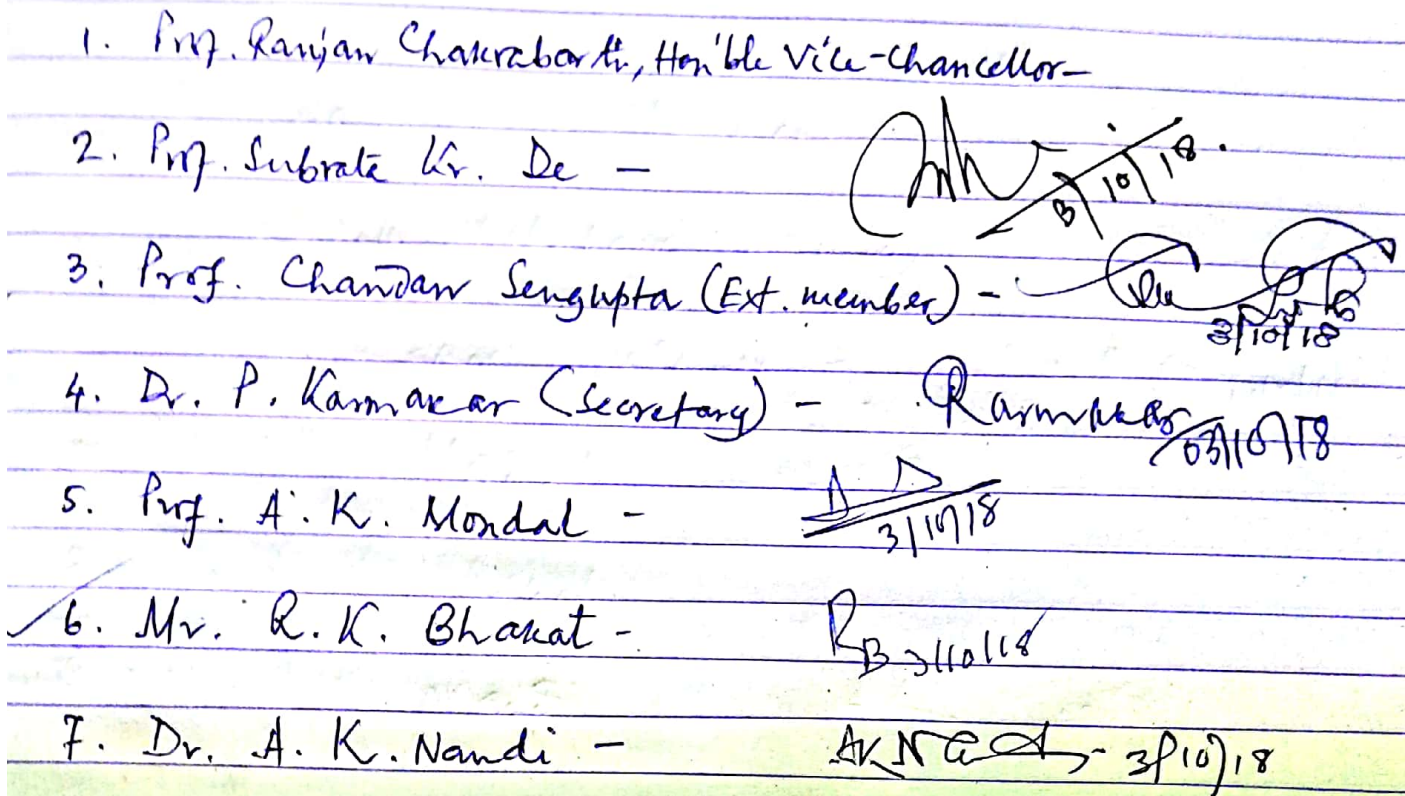 1. Prof. Ranjan Chakrabarti, Hon'ble Vice-Chancellor-
2. Prof. Subrata Kr. De - 3/10/18.
3. Prof. Chandan Sengupta (Ext. member) - 3/10/18
4. Dr. P. Karmakar (Secretary) - Karmakar 03/10/18
5. Prof. A. K. Mondal - 3/10/18
6. Mr. R. K. Bhakat - RB 3/10/18
7. Dr. A. K. Nandi - AKN 3/10/18